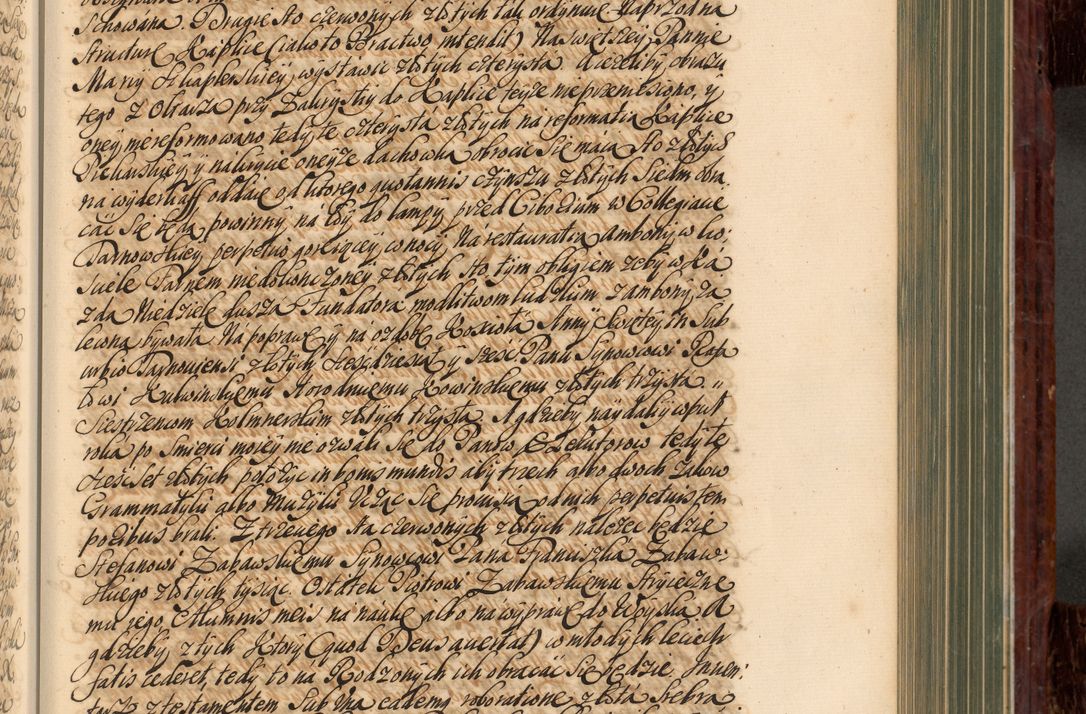 Schowana. Drugie sto czerwonych złotych tak ordynuię Naprzod na
structurę Kaplice (iak sto Bractwo intendit) Naswiętszey Pannie
Maryi Szkaplerskiey wystawić złotych czterysta. A ieżeliby obrazu
tego z Ołtarza przy Zakrystiy do Kaplice teyże nieprzeniesiono, y
oney niereformowano tedy te czterysta złotych na reformatią Kaplice
y nakrycie oneyże dachowką obrocić się maią sto złotych
na wyderkaff oddaię od ktorego quotannis czynszu złotych siedm obra
cać się będą powinny na łóy do lampy przed Ciborium w Collegiacie
Tarnowskiey perpetuo goraiącey w nocy. Na restauratią ambony w ko:
sciele Farnem niedokończoney złotych sto tym obligiem zeby w Ka
zda Niedzielę dusza Fundatora modlitwom ludzkim z ambony za
lecona bywała. Na poprawę y na ozdobę Koscioła Anny Swiętey in Sub
urbio Tarnoviensi złotych szescdziesiąt y szesc Panu Synowcowi Rafa
łowi Kulwinskiemu Korodnuemu Kowinskiemu złotych trzysta. "
Siestrzencom Kolmnerskim złotych trzysta. A gdzieby naydaliy w puł
roka po smierci moiey nie ozwali się do Panow Exekutorow tedy te
szescset złotych położyć in bonis mundis aby trzech albo dwoch zakow
Grammatyki albo Muzyki ucząc się prowizą od nich perpetuis tem
poribus brali. Z trzeciego sta czerwonych złotych należec będzie
Stefanowi Zabawskiemu Synowcowi Pana Franciszka Zabaw:
skiego złotych tysiąc. Ostatek Piotrowi Zabawskiemu stryieczne
mu iego Alumnis meis na naukę albo na wyprawę do Woyska A
gdzieby z tych Ktory (quod Deus avertat) w młodych leciech
fatis cederet, tedy to na Rodzonych ich obracać się będzie. Inwen:
tarz z testamentem sub una eademq roboratione złota srebra,